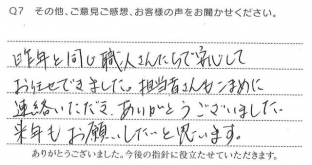 Q7 その他、ご意見ご感想、お客様の声をお聞かせください。
昨年と同じ職人さんたちで安心して
お任せできました。担当者さんもこまめに
連絡いただき、ありがとうございました。
来年もお願いしたいと思います。
ありがとうございました。今後の指針に役立たせていただきます。